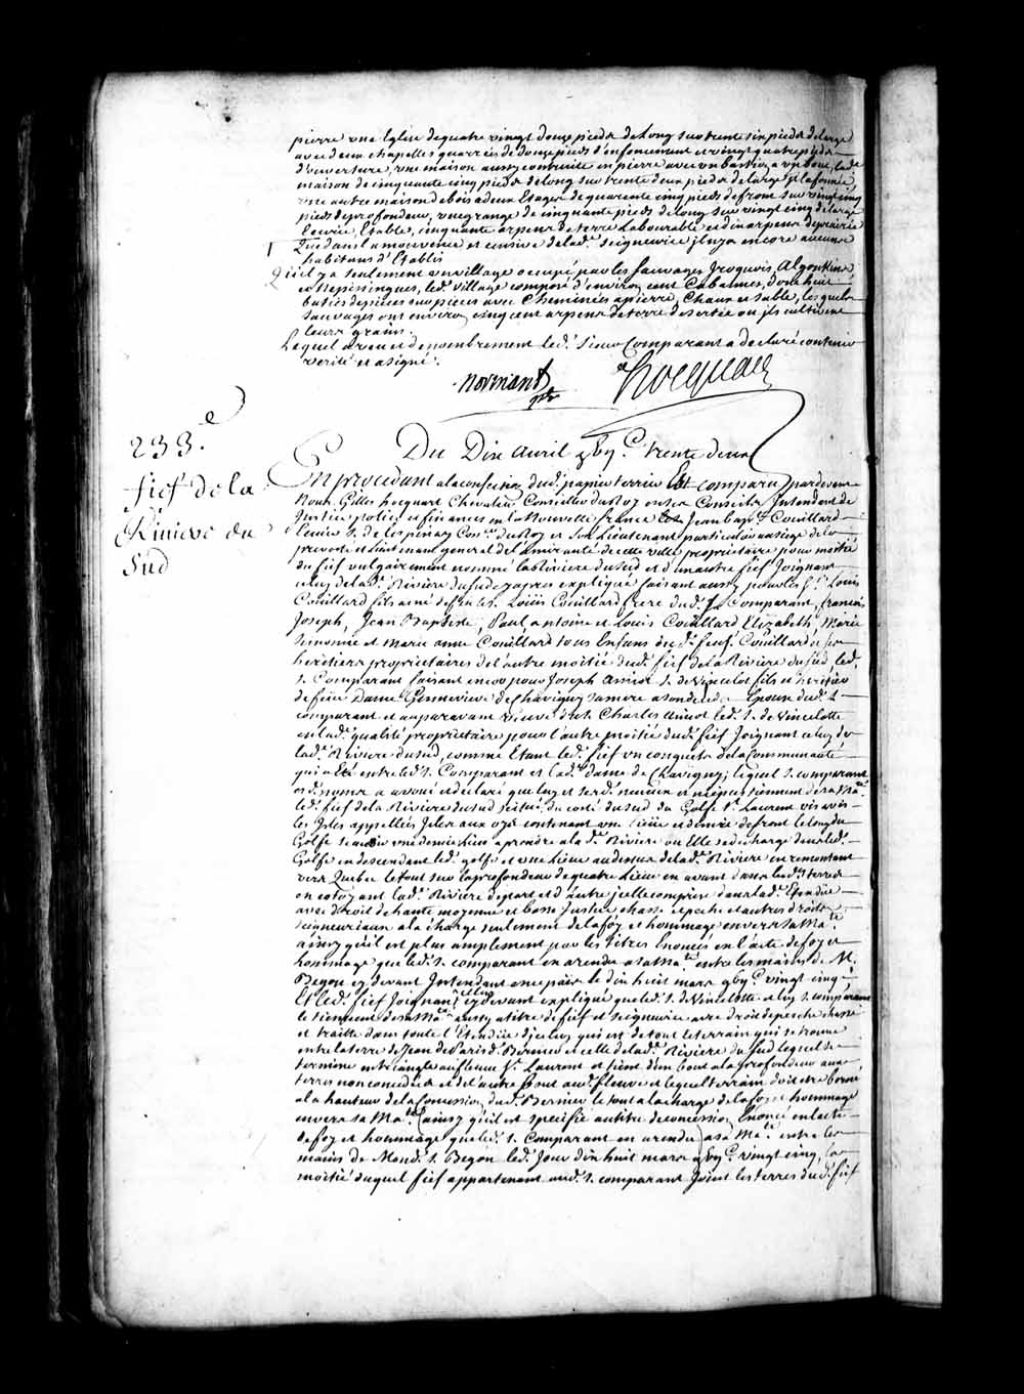 pierre une Eglise de quatre vingt douze pieds de Long sur trente six pieds de large
avec deux chapelles quarrées de douze pieds d'enfoncement et vingt quatre pieds
d'ouverture, une maison aussy construite en pierre avec un bastion a un bout, lade
maison de cinquante cinq pieds de long sur trente deux pieds de large plafonnée,
une autre maison de bois a deux Etages de quarente cinq pieds de front sur vingt cinq
pieds de profondeur, une grange de cinquante pieds de long sur vingt cinq de large
Ecurie, Etable, cinquante arpens de terre Labourable et dix arpens de prairie
Que dans la mouvence et censive de lad. seigneurie il ny a encore aucuns
habitans d'Etablis
Qu'il y a seulement un village occupé par les sauvages Iroquois, Algonkins
et Nepissingues, led. village composé d'environ cent Cabannes, dont huit
baties de pieces sur pieces avec Cheminées a pierre, Chaux et Sable, lesquels
sauvages ont environ cinq cent arpens de terre desertée ou ils cultivent
leurs grains.
Lequel aveu et denombrement led. Sieur Comparant a declaré contenir
verité et a signé.
Normant ptre hocquart
233.e
fief de la
Riviere du
Sud
Du Dix avril 9 by C. trente deux
En procedant a la confection dud. papier terrier Est comparu pardevant
Nous Gilles hocquart Chevalier Conseiller du Roy en ses Conseils Intendant de
Justice police et finances en la Nouvelle france Jean bap.te Couillard
Ecuier S. de Lespinay Con.er du Roy et son Lieutenant particulier au siege de la
prevosté et Lieutenant general de l'amirauté de cette ville propriétaire pour moitié
du fief vulgairement nommé la Riviere du sud et d'un autre fief Joignant
celuy de lad. Riviere du sud cy apres expliqué faisant aussy pour les S.rs Louis
Couillard fils ainé de feu S. Loüis Couillard frere dud. S. Comparant, francois
Joseph, Jean Baptiste, Paul antoine et Louis Couillard Elizabeth Marie
Simonne et Marie anne Couillard tous Enfans dud. feu S. Couillard et ses
heretiers propriétaires de l'autre moitié dud. fief de la Riviere du sud, led.
S. Comparant faisant encor pour Joseph amiot S. de Vincelot fils et heritier
de feüe Dame Genevieve de Chavigny sa mere a son deceds Epouse dud. S.
comparant et auparavant veuve du S. Charles amiot led. S. de Vincelotte
en lad. qualité propriétaire pour l'autre moitié dud. fief Joignant celuy de
lad. Riviere du sud, comme Etant led. fief un conquets de la Communauté
qui a Eté entre led. S. Comparant et lad. dame de Chavigny; lequel S. comparant
esd. noms a avoué et declaré que luy et sesd. neveux et nieces tiennent de sa Ma.té
led. fief de la Riviere du sud scitué du costé du sud du Golfe S.t Laurent vis avis
les Isles appellées Isles aux oyes contenant une Lieüe et demie de front le long du
Golfe sçavoir une demie Lieue a prendre a la d. Riviere ou Elle se decharge dans led.
Golfe en descendant led. golfe et une Lieue audessus de lad. Riviere en remontant
vers Quebec le tout sur la profondeur de quatre Lieües en avant dans lesd. terres
en cotoyant lad. Riviere de part et d'autre Jcelle comprise dans lad. Etendue
avec droit de haute moyenne et basse Justice chasse et peche et autres droits
seigneuriaux a la charge seulement de la foy et hommage envers sa Ma.té
ainsy qu'il est plus amplement par les titres Enoncés en l'acte de foy et
hommage que led. S. comparant en a rendu a sa Ma.té entre les mains de M.
Begon cy devant Intendant en ce païs le dix huit mars 9 by C. vingt cinq
Et led. fief Joignant cy devant expliqué que led. S. de Vincelotte et luy S. comparant
le tiennent de sa Ma.té aussy a titre de fief et seigneurie avec droit de pesche chasse
et traitte dans toute l'Etendüe d'jceluy qui est de tout le terrain qui se trouve
entre la terre de Jean de Paris d. Bernier et celle de lad. Riviere du Sud lequel se
termine en triangle au fleuve S.t Laurent et tient d'un bout a la profondeur aux
terres non concedées et de l'autre bout aud. fleuve et lequel terrain doit etre borné
a la hauteur de la Concession dud. Bernier le tout a la charge de la foy et hommage
envers sa Ma.té (ainsy qu'il est specifié au titre de concession Enoncé en l'acte
de foy et hommage que led. S. Comparant en a rendu) a sa Ma.té entre les
mains de Mond. S. Begon led. Jour dix huit mars 9 by C. vingt cinq, la
moitié duquel fief appartenant aud. S. comparant Joint les terres dud. fief